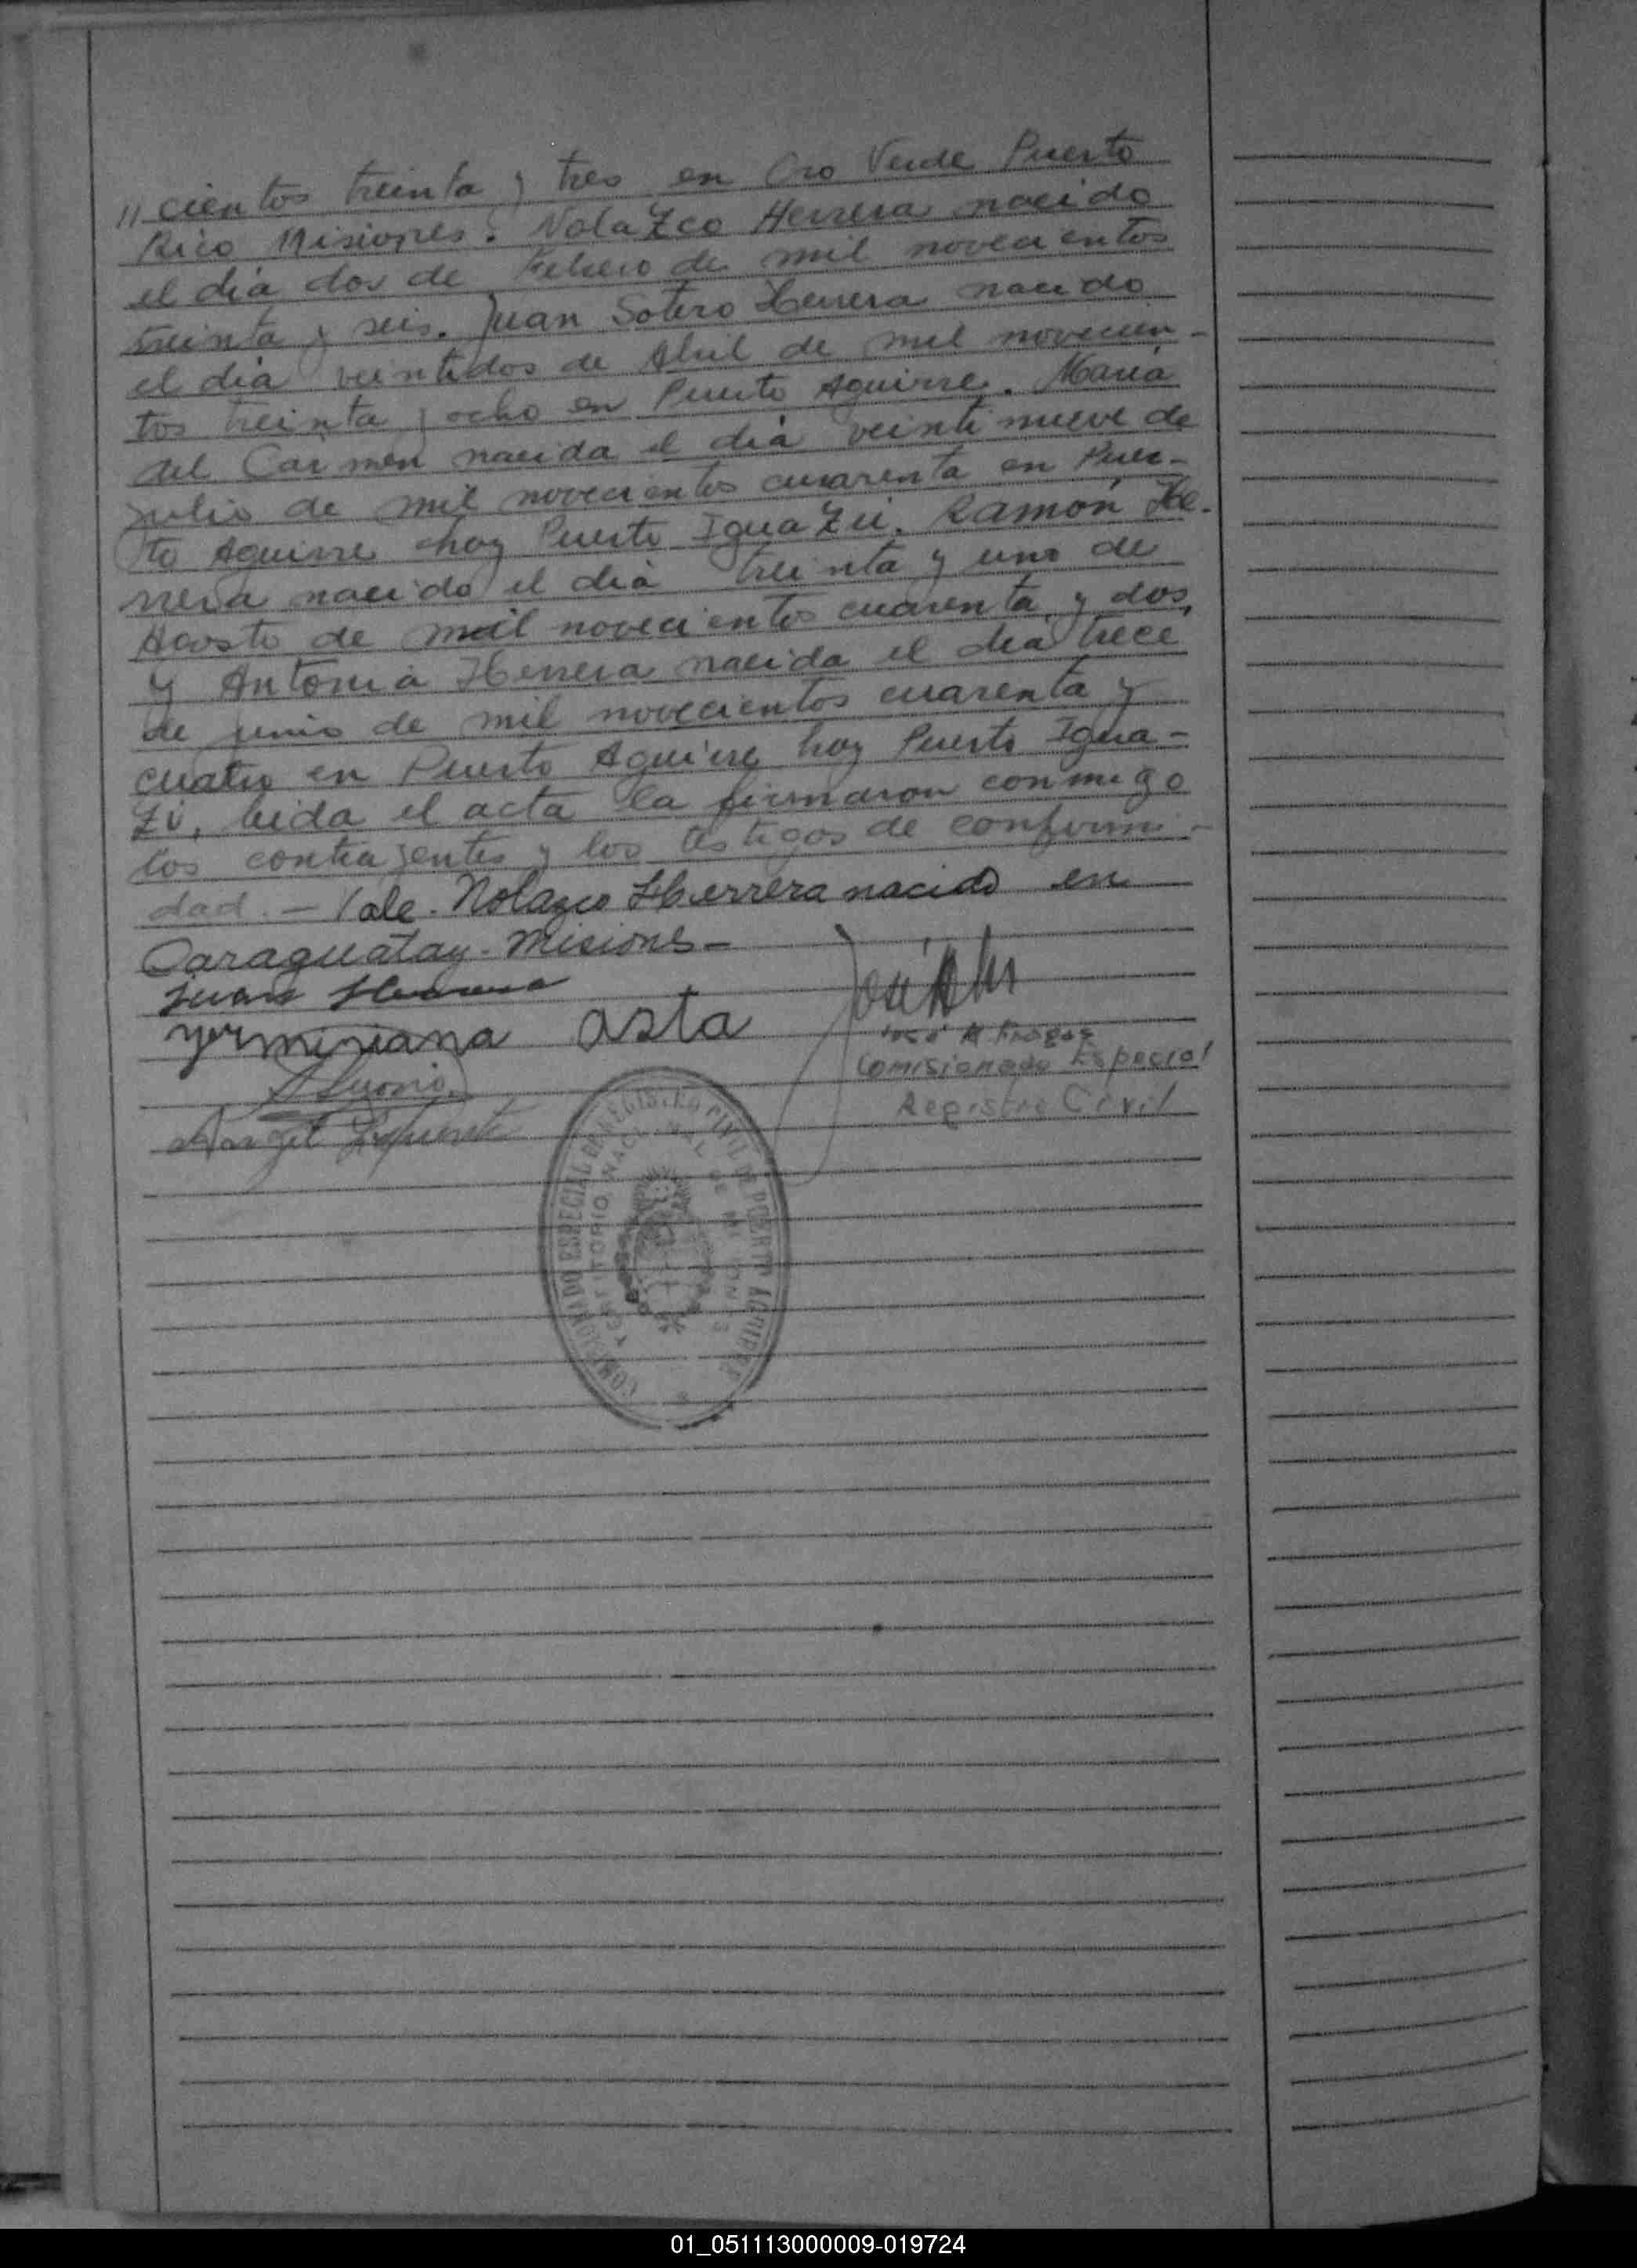 // cientos treinta y tres en Oro Verde Puerto
Rico Misiones. Nolazco Herrera nacido
el día dos de Febrero de mil novecientos
treinta y seis. Juan Sotero Herrera nacido
el día veintidos de Abril de mil novecien-
tos treinta y ocho en Puerto Aguirre. María
del Carmen nacida el día veintinueve de
julio de mil novecientos cuarenta en Puer-
to Aguirre hoy Puerto Iguazú. Ramón He-
rrera nacido el día treinta y uno de
Agosto de mil novecientos cuarenta y dos,
y Antonia Herrera nacida el día trece
de junio de mil novecientos cuarenta y
cuatro en Puerto Aguirre hoy Puerto Igua-
zú, leida el acta la firmaron conmigo
los contrayentes y los testigos de conformi-
dad. - Vale. Nolazco Herrera nacido en
Caraguatay - Misiones -
Juan Herrera
yerminiana asta
José A.
Comisionado Especial
Registro Civil
Angel
COMISIONADO ESPECIAL DEL REGISTRO CIVIL DE PUERTO AGUIRRE
TERRITORIO NACIONAL DE MISIONES
01_051113000009-019724